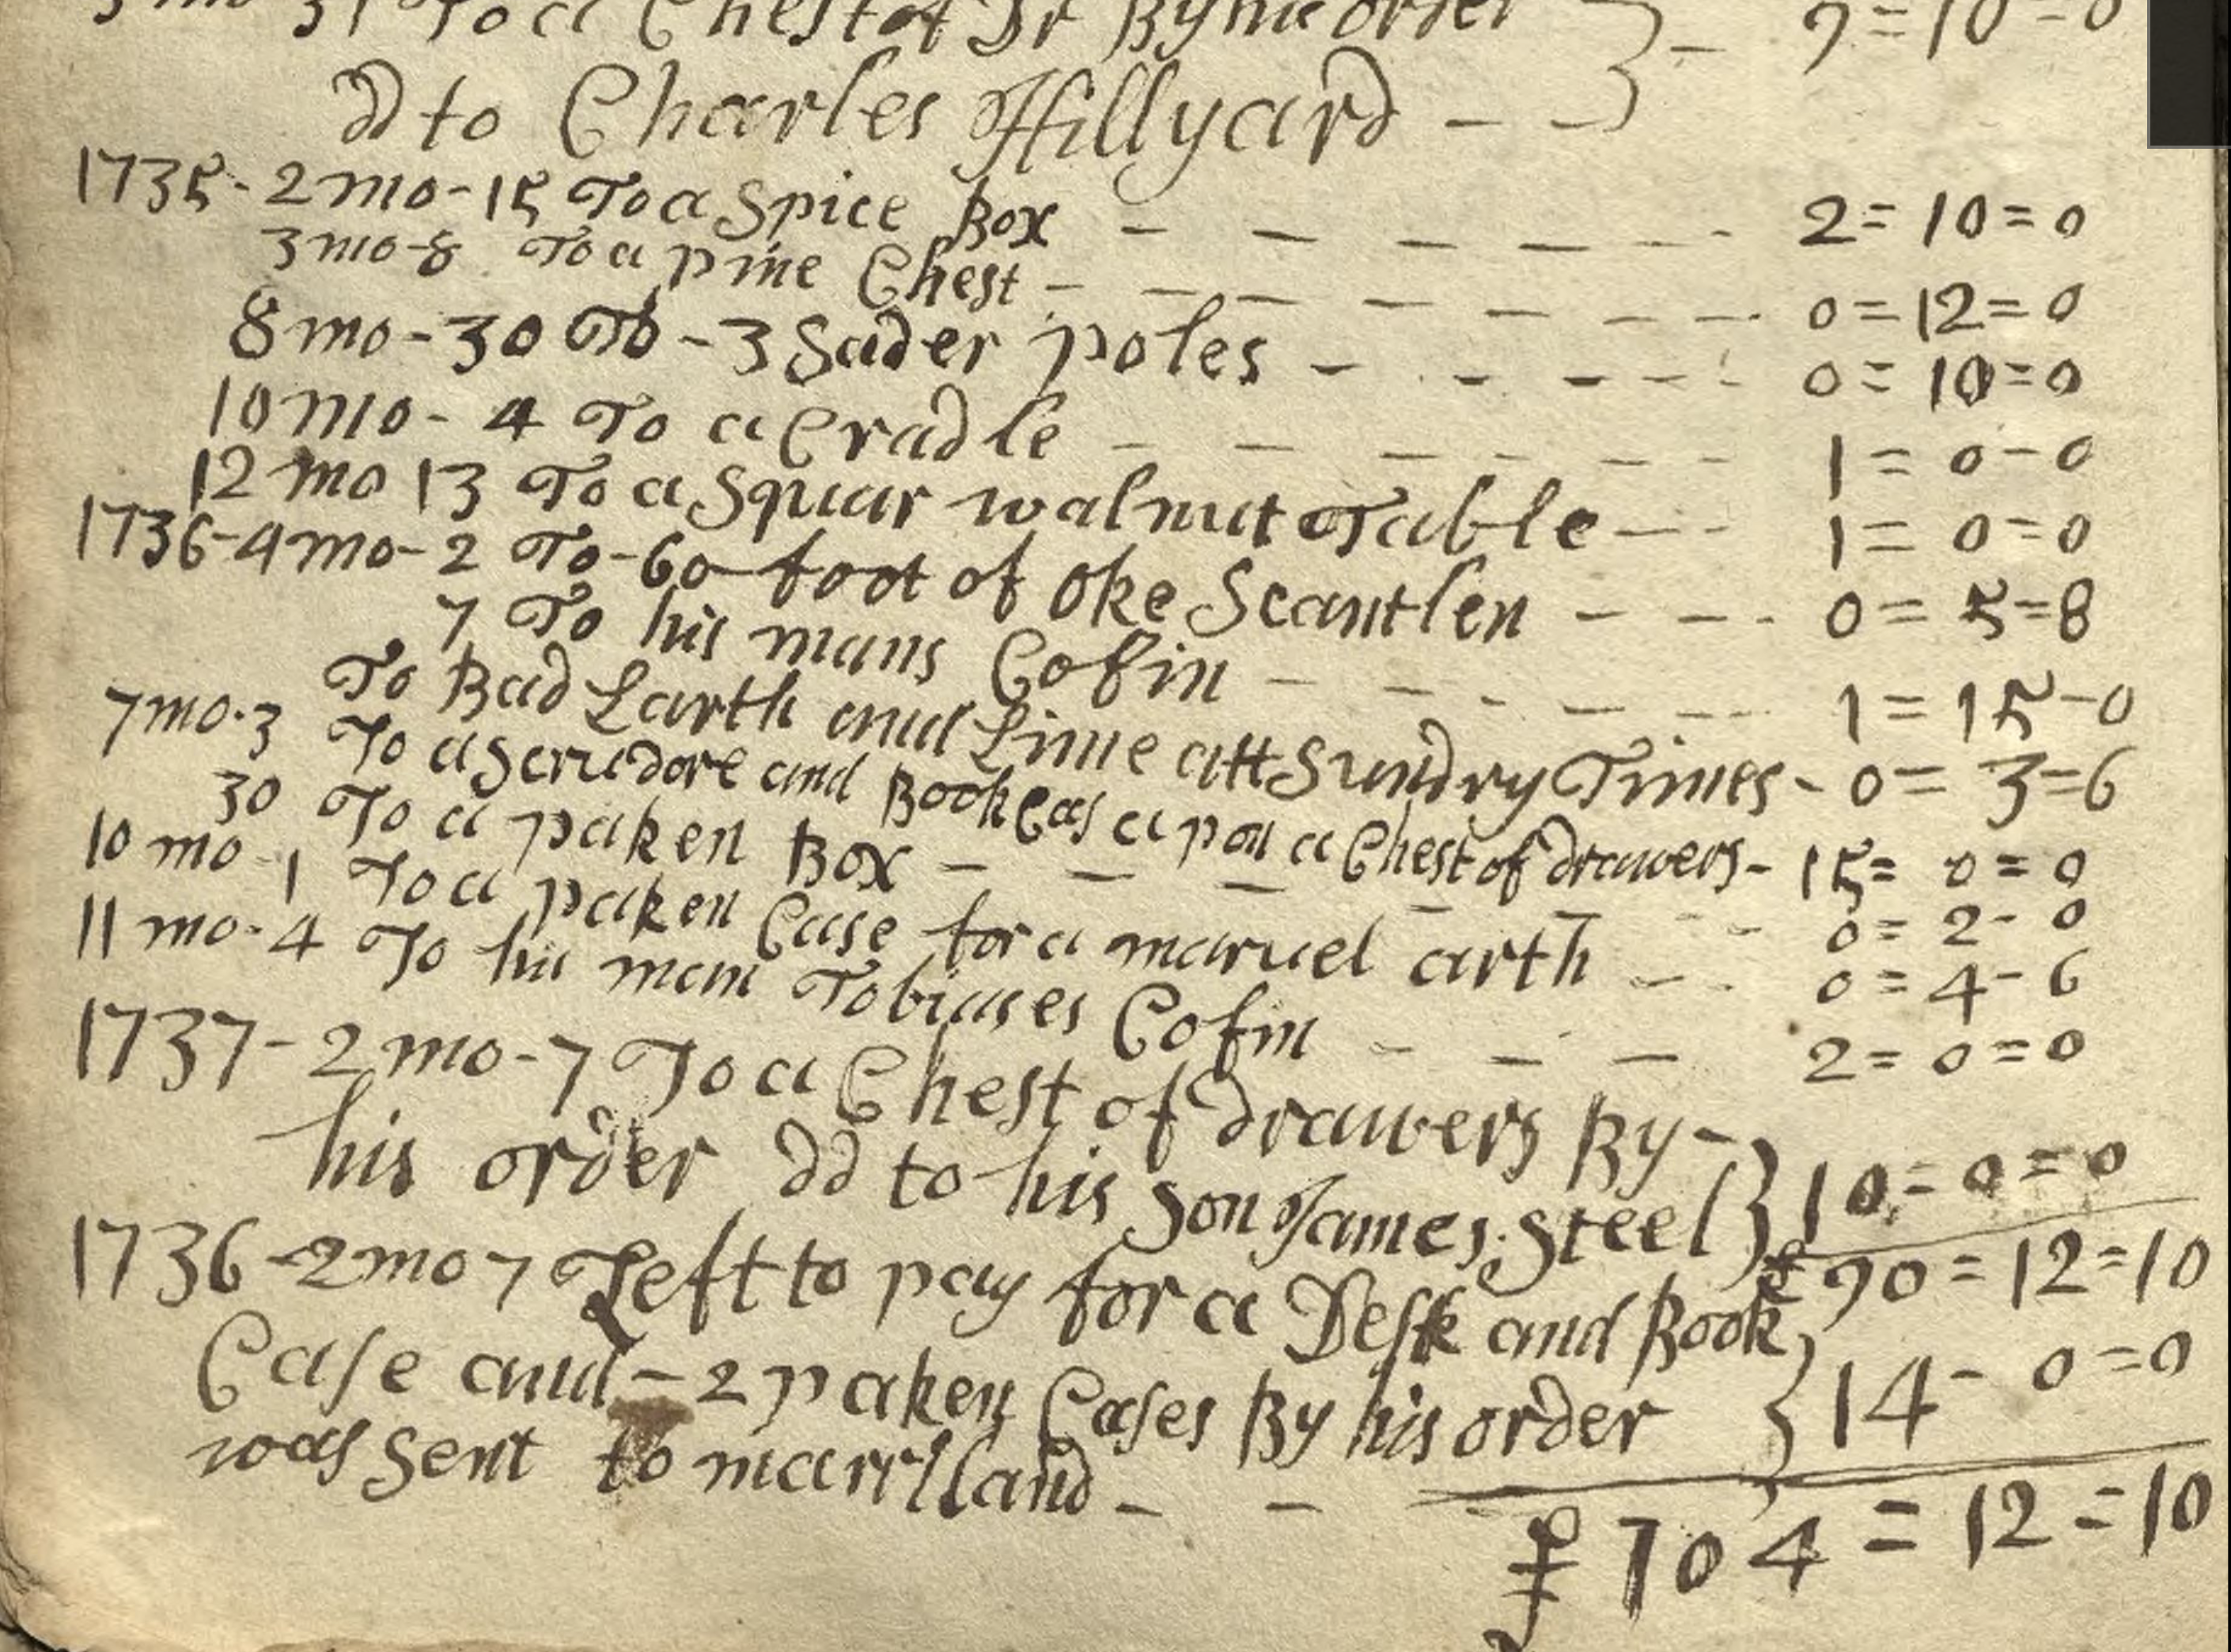 31 To a Chest of Dr By his order - 9=10-0
dd to Charles Hillyard - -
1735-2mo-15 To a Spice Box - - - - - - 2=10=0
3mo-8 To a pine Chest - - - - - - - 0=12=0
8mo-30 To-3 Sader poles - - - - - 0=10=0
10mo-4 To a Cradle - - - - - - 1=0-0
12mo 13 To a Squar walnut Table - - - 1=0=0
1736-4mo-2 To-60 foot of Oke Scantlen - - - 0=5=8
7 To his mans Cofin - - - - - 1=15-0
To Bad Larth and Lime att Sundry Times - 0=3=6
7mo-3 To a Scrudore and Book Cas a pon a Chest of drawers - 15=0=0
30 To a paken Box - - - - - - - 0=2-0
10mo-1 To a paken Case for a maruel arth - - 0=4-6
11mo-4 To his man Tobiases Cofin - - - 2=0=0
1737-2mo-7 To a Chest of drawers By -
his order dd to his son James Steel 10=0=0
£ 90=12=10
1736-2mo 7 Left to pay for a Desk and Book
Case and - 2 paken Cases By his order 14-0=0
was sent to marriland - -
£ 104=12=10